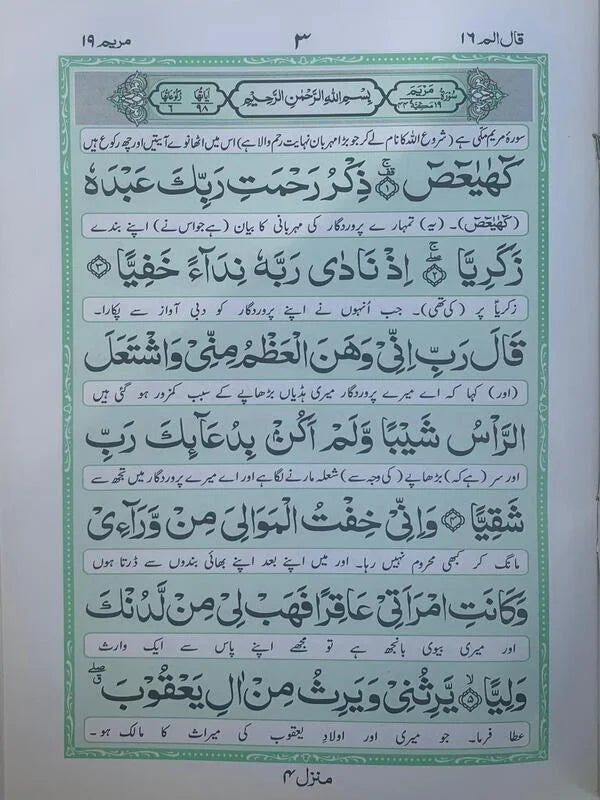 قال الم ١٦ ٣ مریم ١٩
سُوْرَةُ مَرْیَمَ ١٩ مَكِّیَّةٌ ٤٤ بِسْمِ اللهِ الرَّحْمٰنِ الرَّحِیْمِ اٰیَاتُهَا ٩٨ رُكُوْعَاتُهَا ٦
سورۂ مریم مکّی ہے (شروع اللہ کا نام لے کر جو بڑا مہربان نہایت رحم والا ہے) اس میں اٹھانوے آیتیں اور چھ رکوع ہیں
كٓهٰیٰعٓصٓ ۚ ۟﴿١﴾ ذِكْرُ رَحْمَتِ رَبِّكَ عَبْدَهٗ
(كٓهٰیٰعٓصٓ)۔ (یہ) تمہارے پروردگار کی مہربانی کا بیان (ہے جو اس نے) اپنے بندے
زَكَرِیَّا ۖۚ﴿٢﴾ اِذْ نَادٰی رَبَّهٗ نِدَآءً خَفِیًّا ﴿٣﴾
زکریاؑ پر (کی تھی)۔ جب اُنہوں نے اپنے پروردگار کو دبی آواز سے پکارا۔
قَالَ رَبِّ اِنِّیْ وَهَنَ الْعَظْمُ مِنِّیْ وَاشْتَعَلَ
(اور) کہا کہ اے میرے پروردگار میری ہڈیاں بڑھاپے کے سبب کمزور ہو گئی ہیں
الرَّاْسُ شَیْبًا وَّلَمْ اَكُنْۢ بِدُعَآئِكَ رَبِّ
اور سر (ہے کہ) بڑھاپے (کی وجہ سے) شعلہ مارنے لگا ہے اور اے میرے پروردگار میں تجھ سے
شَقِیًّا ﴿٤﴾ وَاِنِّیْ خِفْتُ الْمَوَالِیَ مِنْ وَّرَآءِیْ
مانگ کر کبھی محروم نہیں رہا۔ اور میں اپنے بعد اپنے بھائی بندوں سے ڈرتا ہوں
وَكَانَتِ امْرَاَتِیْ عَاقِرًا فَهَبْ لِیْ مِنْ لَّدُنْكَ
اور میری بیوی بانجھ ہے تو مجھے اپنے پاس سے ایک وارث
وَلِیًّا ۙ﴿٥﴾ یَّرِثُنِیْ وَیَرِثُ مِنْ اٰلِ یَعْقُوْبَ ۖۗ
عطا فرما۔ جو میری اور اولادِ یعقوب کی میراث کا مالک ہو۔
منزل ۴